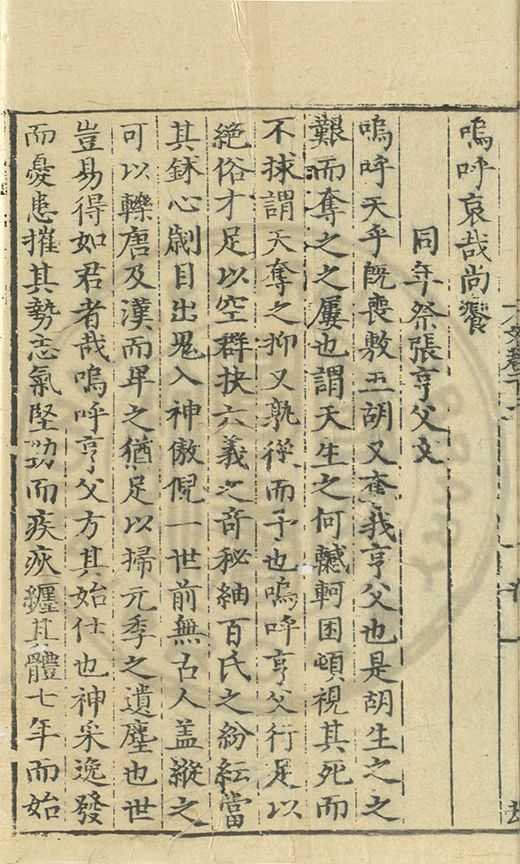 嗚呼哀哉尚饗
同年祭張亨父文
嗚呼天乎既喪敷五胡又奪我亨父也是胡生之之
艱而奪之之屢也謂天生之何轗軻困頓視其死而
不捄謂天奪之抑又孰從而予也嗚呼亨父行足以
絶俗才足以空群抉六義之奇秘紬百氏之紛紜當
其鉥心劌目出鬼入神傲倪一世前無古人盖縱之
可以轢唐及漢而畀之猶足以掃元季之遺塵也世
豈易得如君者哉嗚呼亨父方其始仕也神采逸發
而憂患摧其勢志氣堅功而疾疢纏其體七年而始